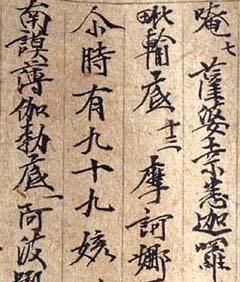 唵七薩婆桒悉迦囉
毗輸底十二摩訶娜
尒時有九十九姟
南謨薄伽勃底一阿波